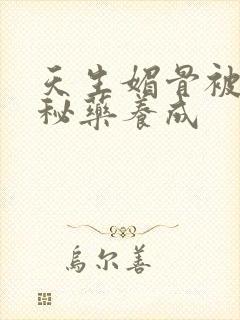 天生媚骨被
秘藥養成
烏尔善